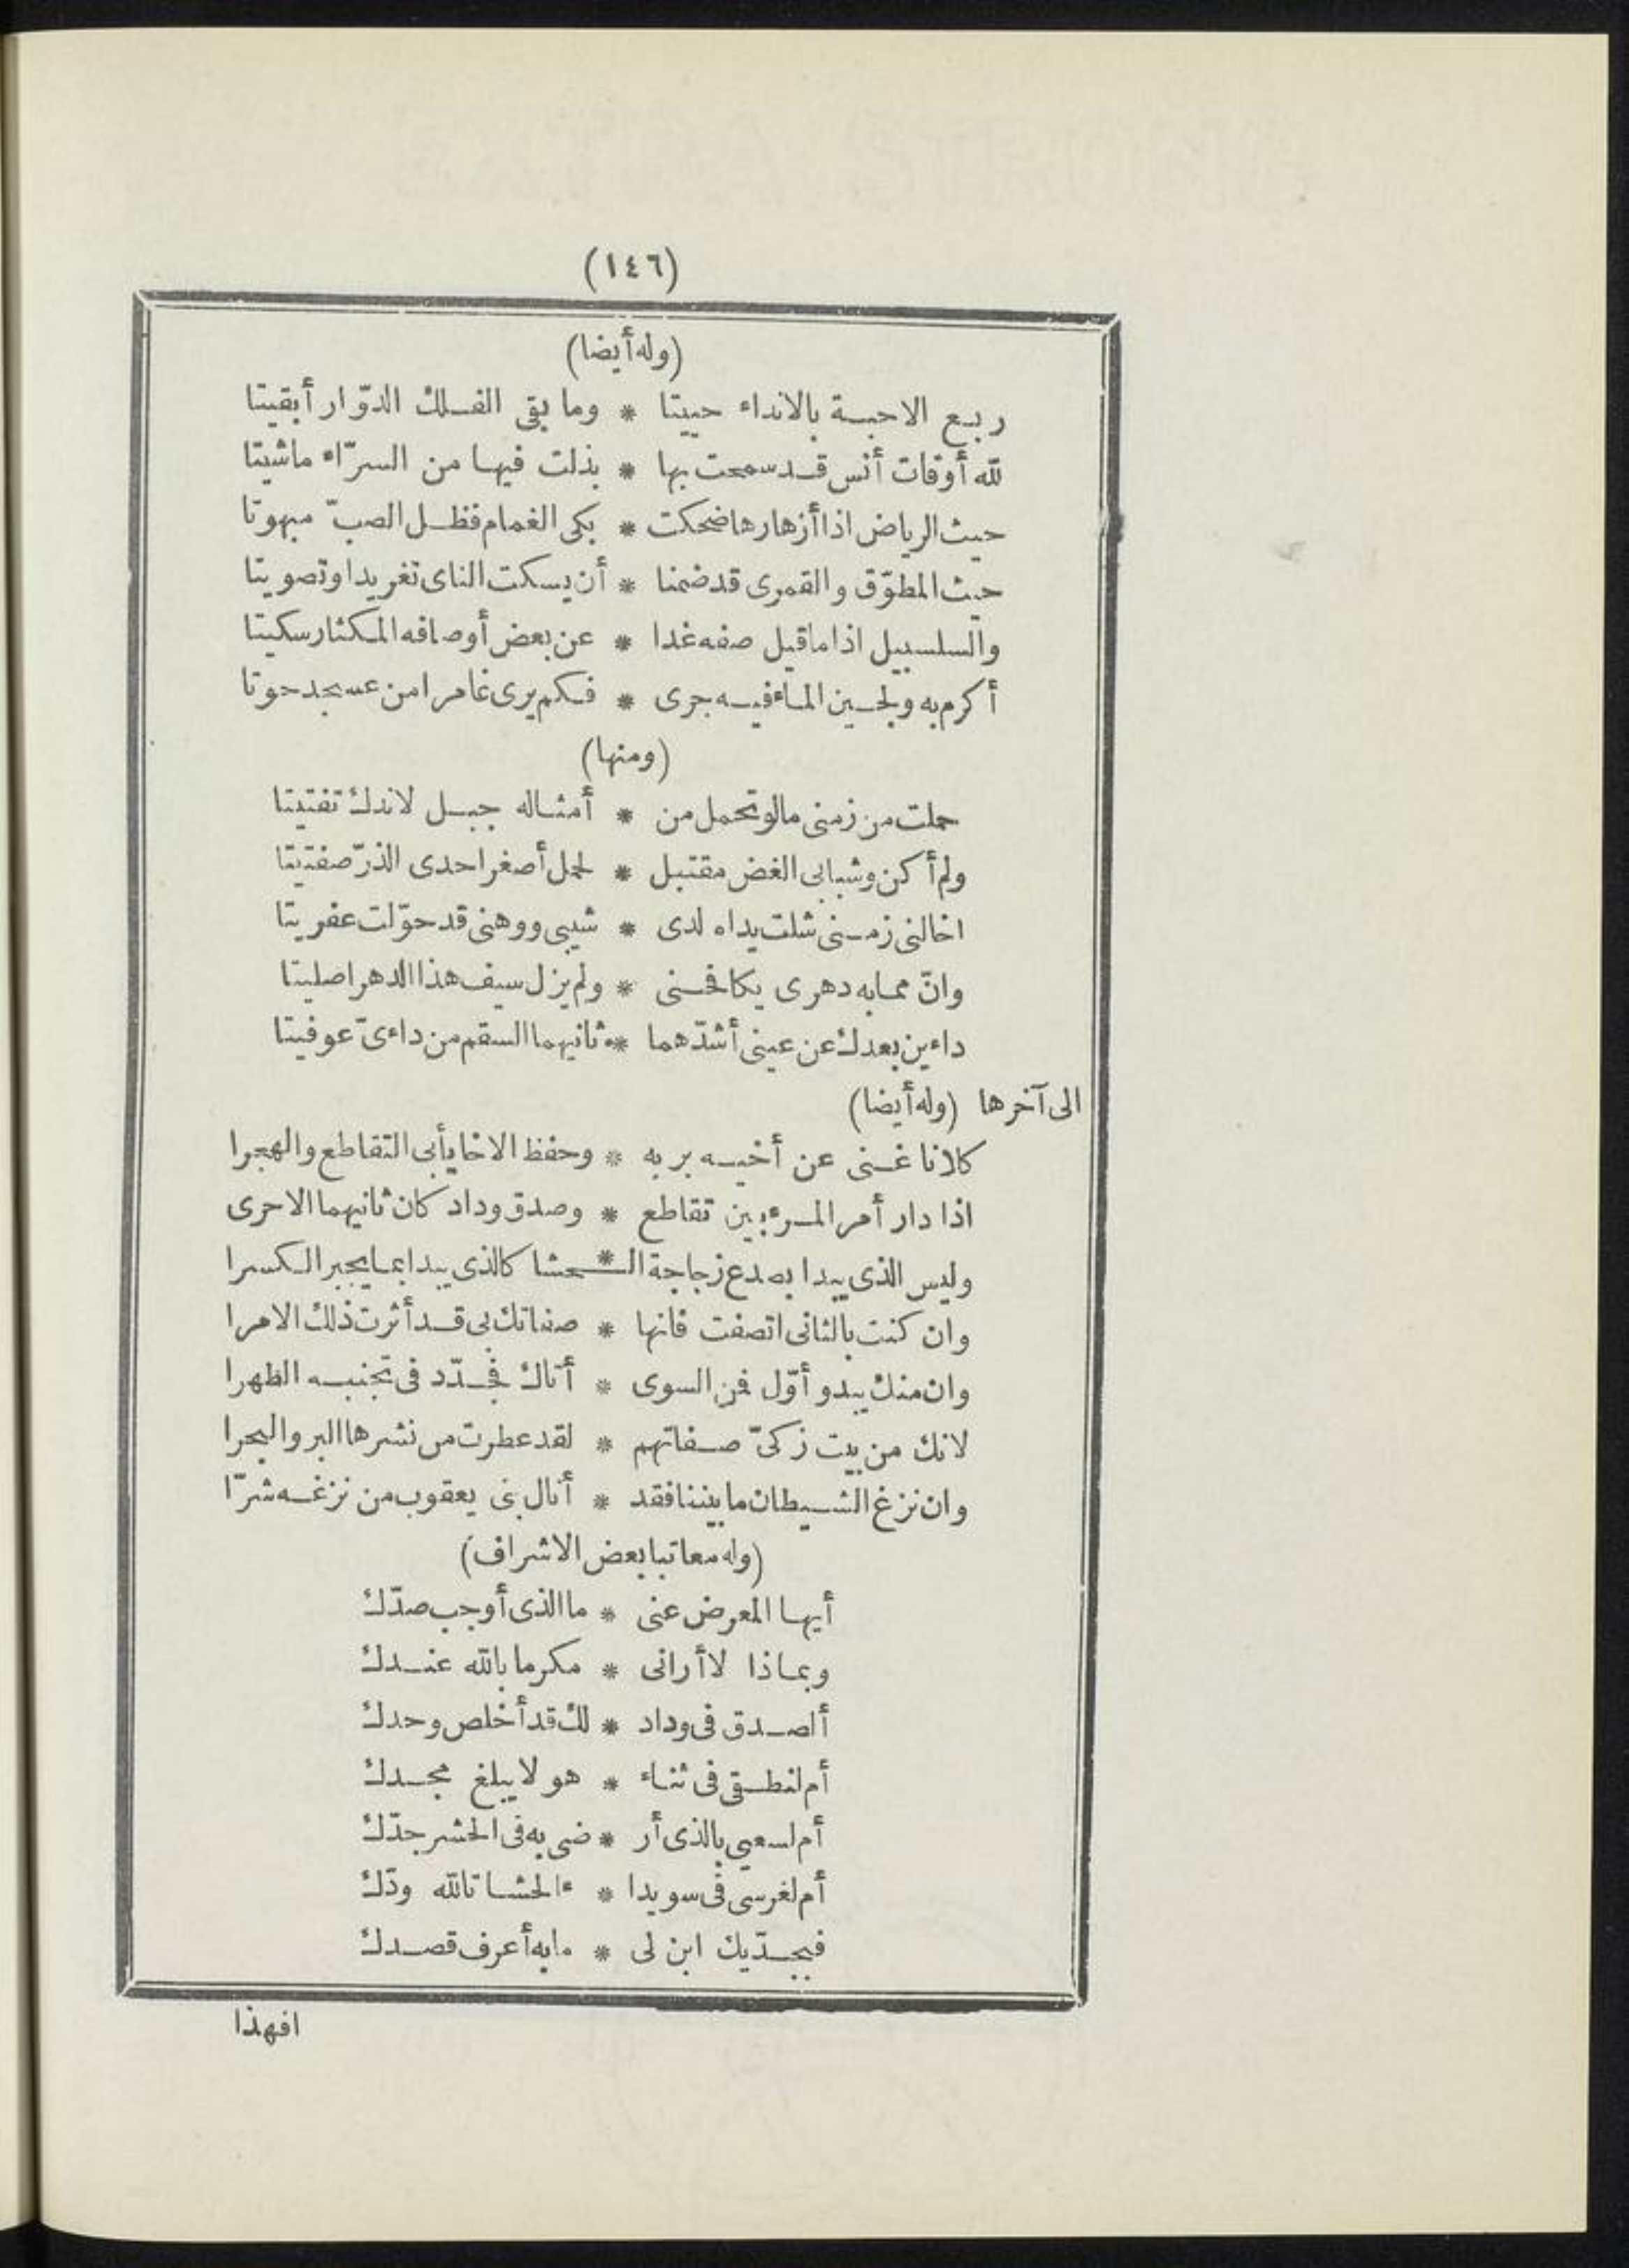 (١٤٦)
(وله أيضا)
ربع الاحبة بالانداء حييتا * وما بقى الفلك الدوّار أبقيتا
لله أوقات أنس قد سمعت بها * بذلت فيها من السرّاء ماشيتا
حيث الرياض اذا أزهارها ضحكت * بكى الغمام فظل الصبّ مبهوتا
حيث المطوّق والقمرى قد ضمنا * أن يسكت الناى تغريدا وتصويتا
والسلسبيل اذا ما قيل صفه غدا * عن بعض أوصافه المكثار سكيتا
أكرم به ولجين الماء فيه جرى * فكم يرى غامرا من عسجد حوتا
(ومنها)
حملت من زمنى مالو تحمل من * أمثاله جبل لاندك تفتيتا
ولم أكن وشبابى الغض مقتبل * لحمل أصغر احدى الذرّ صفتيتا
اخالنى زمنى شلت يداه لدى * شيبى ووهنى قد حوّلت عفريتا
وانّ مما به دهرى يكافحنى * ولم يزل سيف هذا الدهر اصليتا
داءين بعدك عن عينى أشدّهما * ثانيهما السقم من داءىّ عوفيتا
الى آخرها (وله أيضا)
كلانا غنى عن أخيه بربه * وحفظ الاخا يأبى التقاطع والهجرا
اذا دار أمر المرء بين تقاطع * وصدق وداد كان ثانيهما الاحرى
وليس الذى يبدا بصدع زجاجة ال * حشا كالذى يبدا بما يجبر الكسرا
وان كنت بالثانى اتصفت فانها * صفاتك بى قد أثرت ذلك الامرا
وان منك يبدو أوّل فمن السوى * أتاك فجدّد فى تجنبه الظهرا
لانك من بيت زكىّ صفاتهم * لقد عطرت من نشرها البر والبحرا
وان نزغ الشيطان ما بيننا فقد * أنال بنى يعقوب من نزغه شرّا
(وله معاتبا بعض الاشراف)
أيها المعرض عنى * ما الذى أوجب صدّك
وبماذا لا أرانى * مكرما بالله عندك
ألصدق فى وداد * لك قد أخلص وحدك
أم لنطقى فى ثناء * هو لا يبلغ مجدك
أم لسعيى بالذى أر * ضى به فى الحشر جدّك
أم لغرسى فى سويدا * ء الحشا تالله ودّك
فبجدّيك ابن لى * ما به أعرف قصدك
افهذا